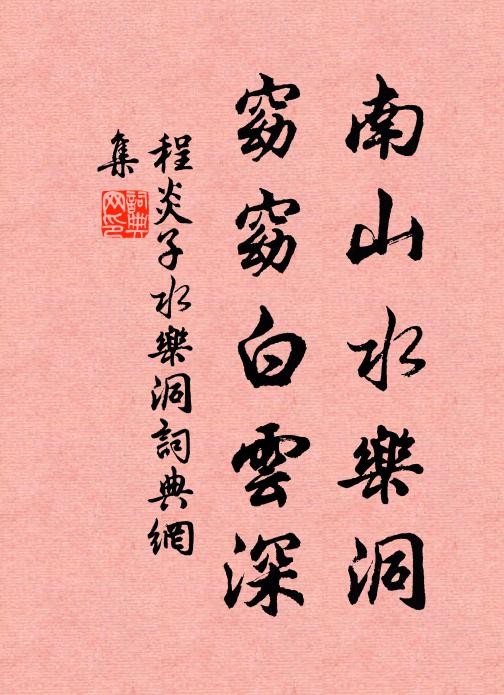 南山水樂洞
窈窈白雲深
程炎子水樂洞詞典網
集
詞典
网印